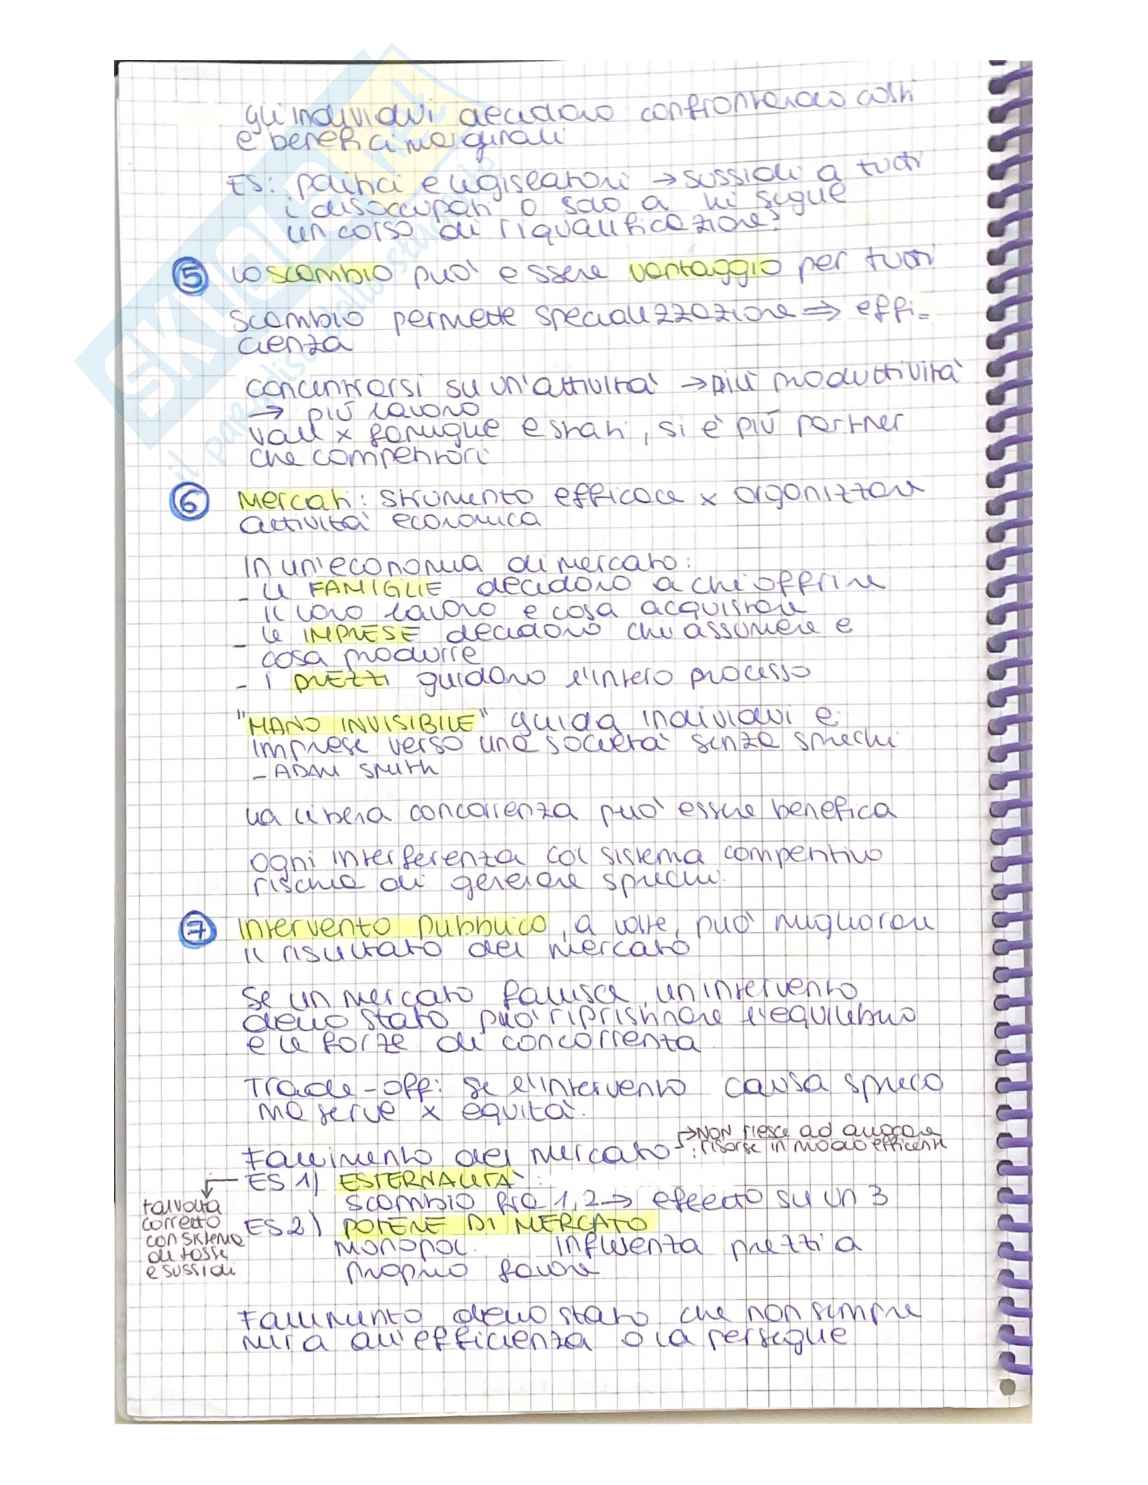 gli individui decidono confrontando costi
e benefici marginali
ES: politici e legislatori → sussidi a tutti
i disoccupati o solo a chi segue
un corso di riqualificazione?
5 Lo scambio può essere vantaggio per tutti
scambio permette specializzazione ⇒ effi-
cienza
concentrarsi su un'attività → più produttività
→ più lavoro
vale x famiglie e stati, si è più partner
che competitori
6 Mercati: strumento efficace x organizzare
attività economica
In un'economia di mercato:
- le FAMIGLIE decidono a chi offrire
il loro lavoro e cosa acquistare
- le IMPRESE decidono chi assumere e
cosa produrre
- i PREZZI guidano l'intero processo
"MANO INVISIBILE" guida individui e
imprese verso una società senza sprechi
- ADAM SMITH
La libera concorrenza può essere benefica
ogni interferenza col sistema competitivo
rischia di generare sprechi.
7 Intervento Pubblico, a volte, può migliorare
il risultato del mercato
Se un mercato fallisce, un intervento
dello stato può ripristinare l'equilibrio
e le forze di concorrenza
Trade-off: se l'intervento causa spreco
ma serve x equità.
Fallimento del mercato → NON riesce ad allocare
risorse in modo efficiente
ES 1) ESTERNALITÀ:
scambio fra 1, 2 → effetto su un 3
talvolta
corretto
con sistema
di tasse
e sussidi
ES 2) POTERE DI MERCATO
monopol. influenza prezzi a
proprio favore
Fallimento dello stato che non sempre
mira all'efficienza o la persegue
SKUOLA.net